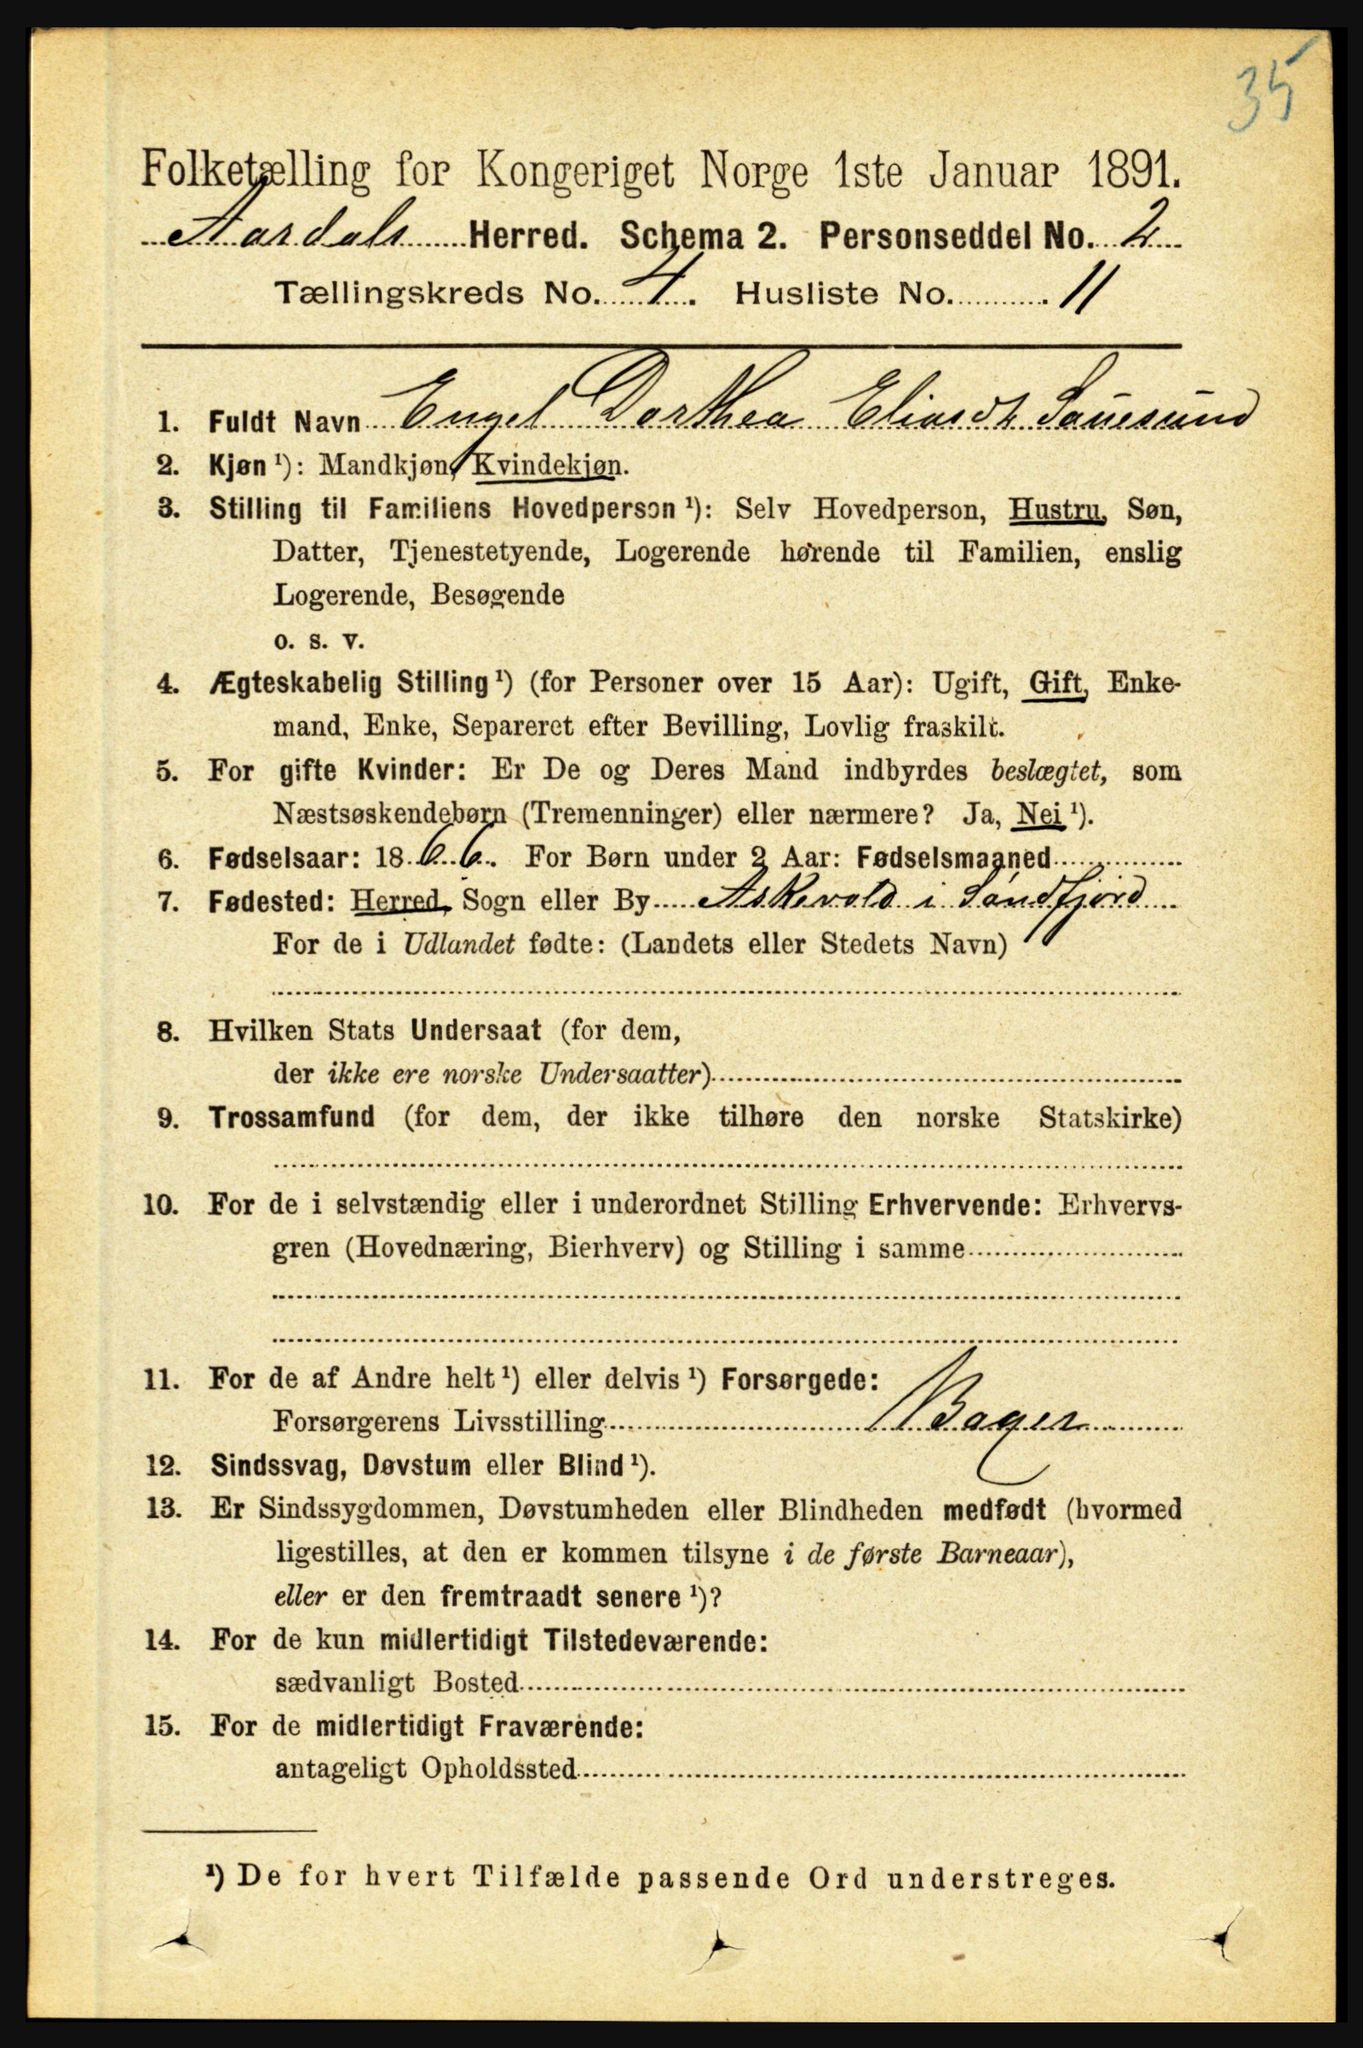 35
Folketælling for Kongeriget Norge 1ste Januar 1891.
Aardals Herred. Schema 2. Personseddel No. 2
Tællingskreds No. 4. Husliste No. 11
1. Fuldt Navn Engel Dorthea Eliasdt. Sauesund
2. Kjøn ¹): Mandkjøn, Kvindekjøn.
3. Stilling til Familiens Hovedperson ¹): Selv Hovedperson, Hustru, Søn,
Datter, Tjenestetyende, Logerende hørende til Familien, enslig
Logerende, Besøgende
o. s. v.
4. Ægteskabelig Stilling ¹) (for Personer over 15 Aar): Ugift, Gift, Enke-
mand, Enke, Separeret efter Bevilling, Lovlig fraskilt.
5. For gifte Kvinder: Er De og Deres Mand indbyrdes beslægtet, som
Næstsøskendebørn (Tremenninger) eller nærmere? Ja, Nei ¹).
6. Fødselsaar: 1866. For Børn under 2 Aar: Fødselsmaaned
7. Fødested: Herred, Sogn eller By Askevold i Søndfjord
For de i Udlandet fødte: (Landets eller Stedets Navn)
8. Hvilken Stats Undersaat (for dem,
der ikke ere norske Undersaatter)
9. Trossamfund (for dem, der ikke tilhøre den norske Statskirke)
10. For de i selvstændig eller i underordnet Stilling Erhvervende: Erhvervs-
gren (Hovednæring, Bierhverv) og Stilling i samme
11. For de af Andre helt ¹) eller delvis ¹) Forsørgede:
Forsørgerens Livsstilling Bager
12. Sindssvag, Døvstum eller Blind ¹).
13. Er Sindssygdommen, Døvstumheden eller Blindheden medfødt (hvormed
ligestilles, at den er kommen tilsyne i de første Barneaar),
eller er den fremtraadt senere ¹)?
14. For de kun midlertidigt Tilstedeværende:
sædvanligt Bosted
15. For de midlertidigt Fraværende:
antageligt Opholdssted
¹) De for hvert Tilfælde passende Ord understreges.